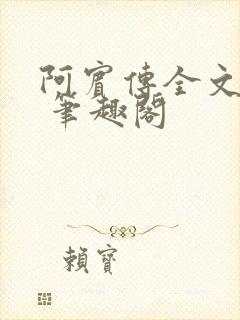 阿賓傳全文
筆趣閣
賴寶